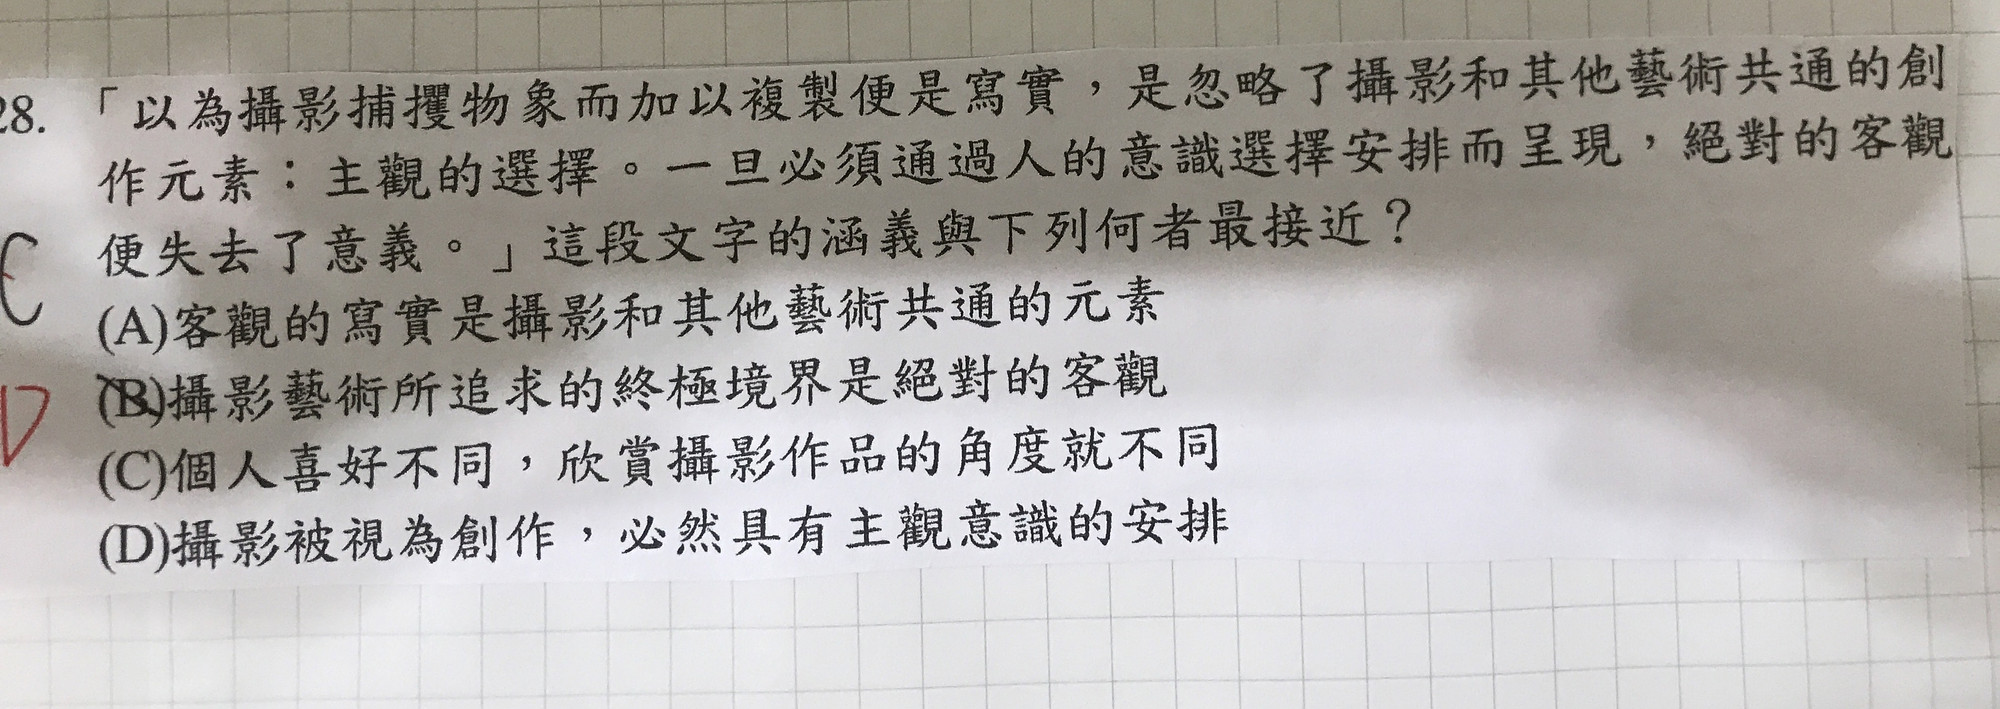 28. 「以為攝影捕攫物象而加以複製便是寫實，是忽略了攝影和其他藝術共通的創
作元素：主觀的選擇。一旦必須通過人的意識選擇安排而呈現，絕對的客觀
C 便失去了意義。」這段文字的涵義與下列何者最接近？
(A)客觀的寫實是攝影和其他藝術共通的元素
D (B)攝影藝術所追求的終極境界是絕對的客觀
(C)個人喜好不同，欣賞攝影作品的角度就不同
(D)攝影被視為創作，必然具有主觀意識的安排